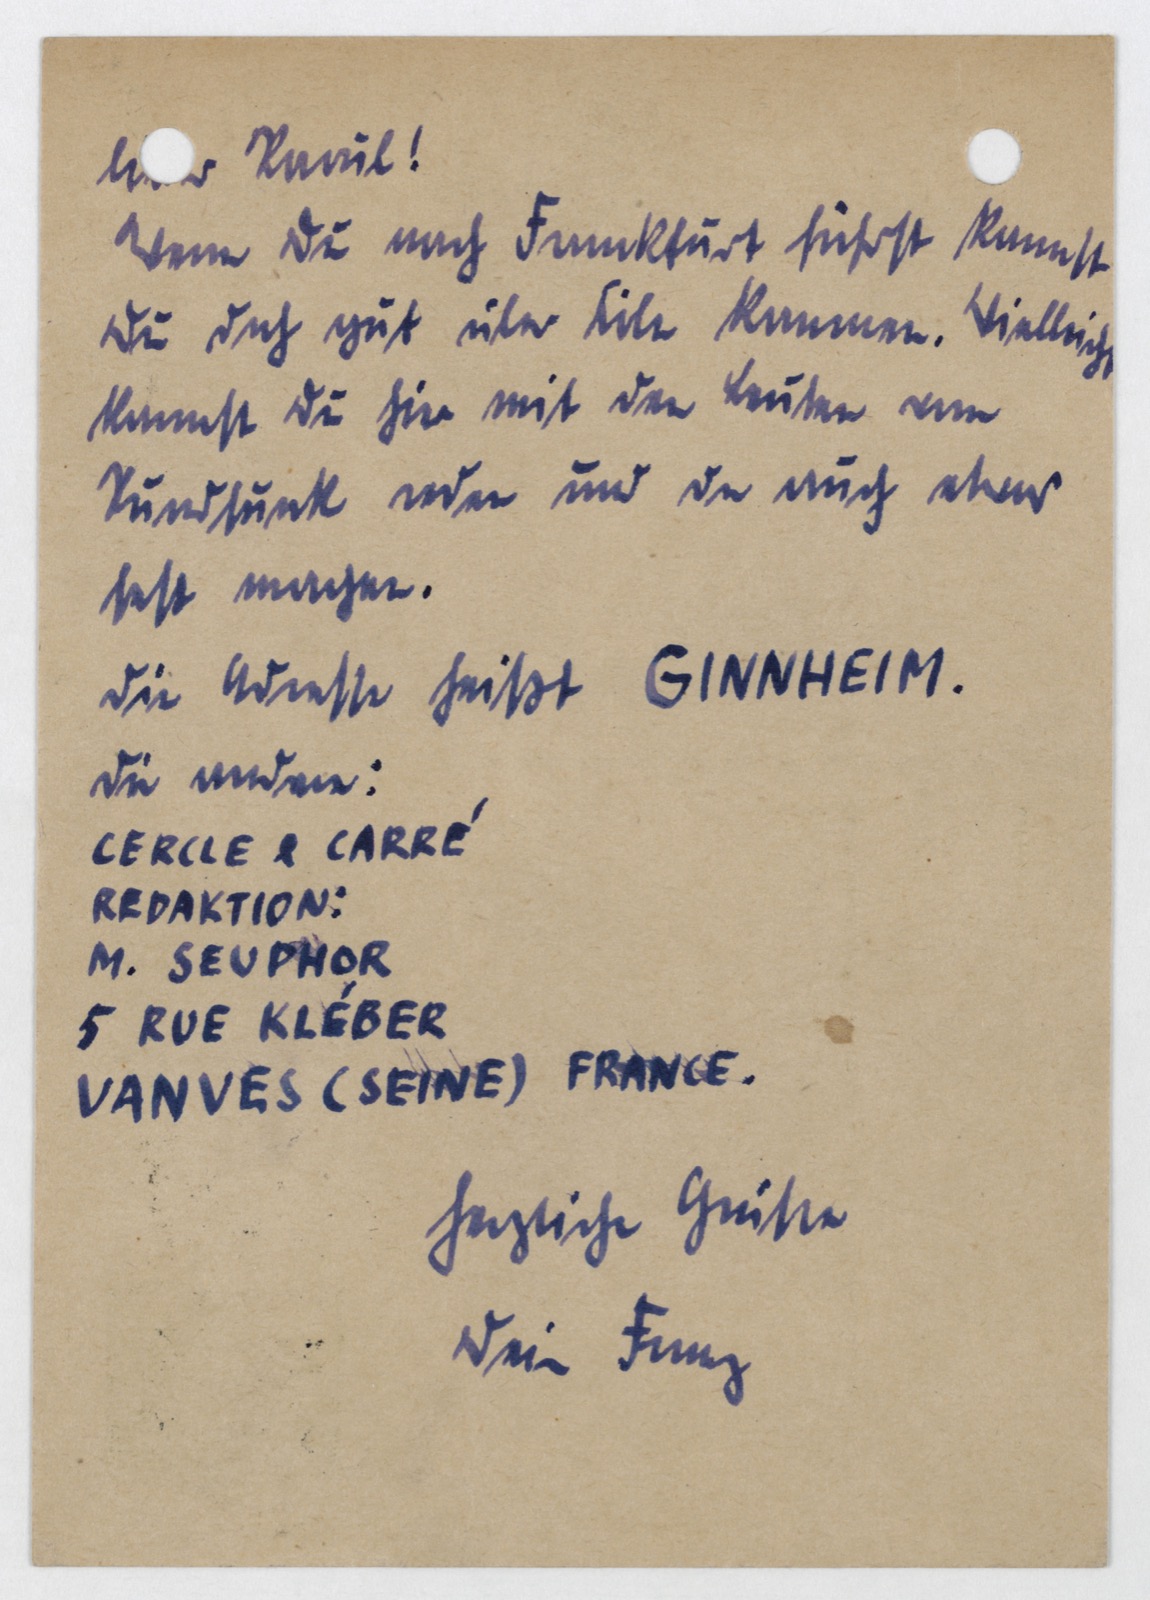 lieber Raoul!
Wenn Du nach Frankfurt fährst kannst
Du doch gut über Köln kommen. Vielleicht
kannst Du hier mit den Leuten vom
Rundfunk reden und da auch etwas
fest machen.
die Adresse heißt GINNHEIM.
die andere:
CERCLE & CARRÉ
REDAKTION:
M. SEUPHOR
5 RUE KLÉBER
VANVES (SEINE) FRANCE.
herzliche Grüsse
Dein Franz